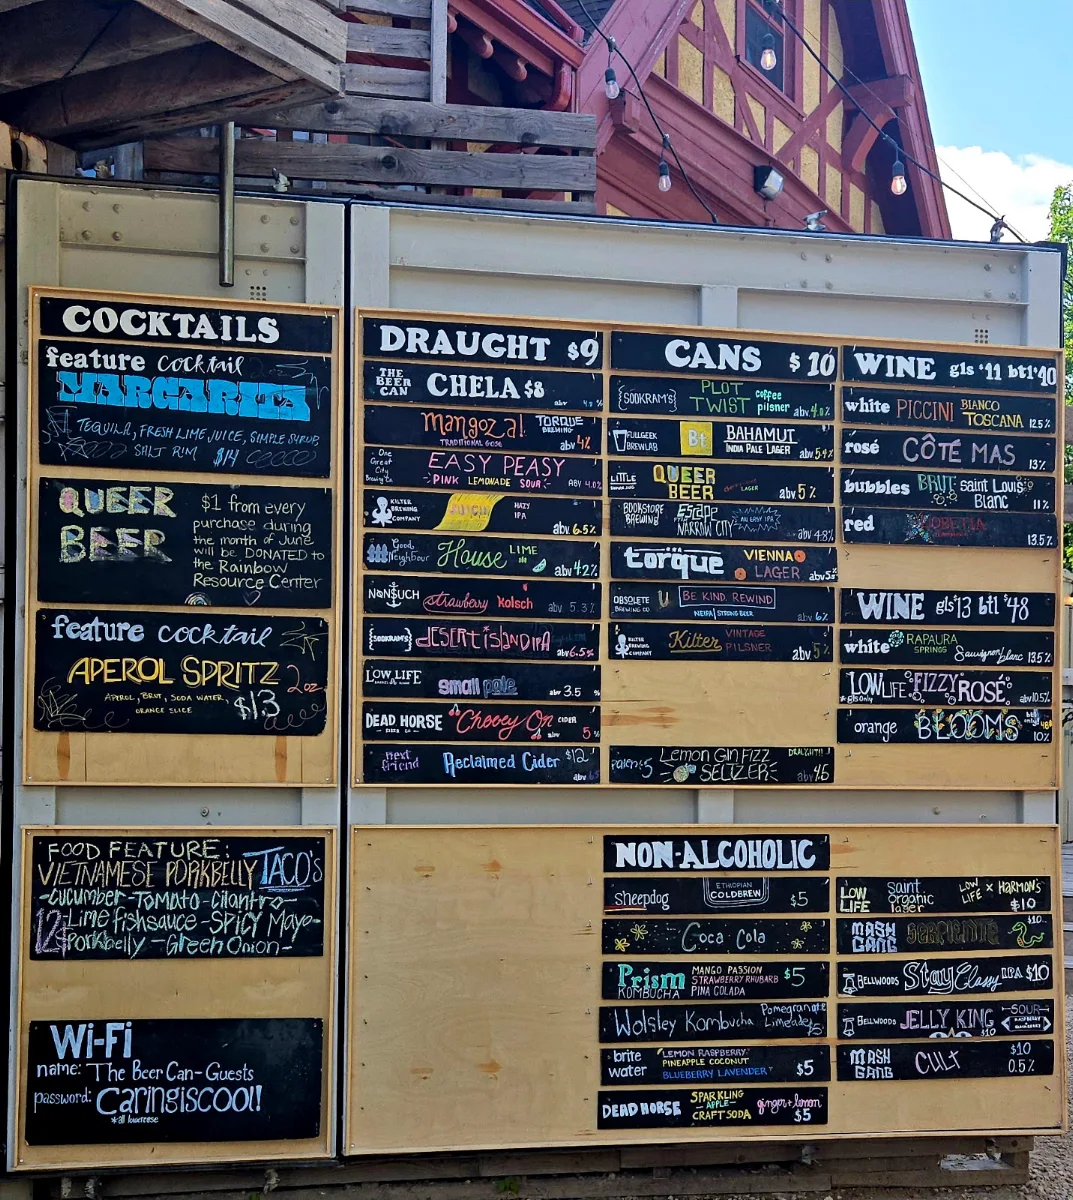 COCKTAILS
feature cocktail
MARGARITA
TEQUILA, FRESH LIME JUICE, SIMPLE SYRUP,
SALT RIM $14
QUEER
BEER
$1 from every
purchase during
the month of June
will be DONATED to
the Rainbow
Resource Center
feature cocktail
APEROL SPRITZ 2oz
APEROL, BRUT, SODA WATER,
ORANGE SLICE $13
DRAUGHT $9
THE BEER CAN CHELA $8
Mangoza! TORQUE BREWING
TRADITIONAL GOSE abv 4%
One Great City Brewing Co EASY PEASY
PINK LEMONADE SOUR ABV 4.0%
KILTER BREWING COMPANY JUICY HAZY IPA
abv 6.5%
Good Neighbour House LIME
abv 4.2%
NONSUCH strawberry kolsch abv 5.3%
{SOOKRAM'S} DESERT ISLAND IPA
abv 6.5%
LOW LIFE small pale abv 3.5 %
DEAD HORSE Cherry On CIDER
abv 5%
next friend Reclaimed Cider $12
CANS $10
{SOOKRAM'S} PLOT TWIST coffee pilsner abv 4.0%
FULLGEEK BREWLAB Bt BAHAMUT
INDIA PALE LAGER abv 5.4%
LITTLE QUEER BEER LAGER abv 5%
BOOKSTORE BREWING Escape NARROW CITY abv 4.8%
torque VIENNA LAGER abv 5%
OBSOLETE BREWING CO BE KIND, REWIND
NEIPA/STRONG BEER abv 6%
KILTER BREWING COMPANY Kilter VINTAGE PILSNER abv 5%
Lemon Gin Fizz
SELTZER abv 4.5
WINE gls $11 btl $40
white PICCINI BIANCO TOSCANA 12.5%
rosé CÔTÉ MAS 13%
bubbles BRUT saint Louis Blanc 11%
red 13.5%
WINE gls $13 btl $48
white RAPAURA SPRINGS Sauvignon blanc 13.5%
LOW LIFE FIZZY ROSÉ
*gls only abv 10.5%
orange BLOOMS 10%
FOOD FEATURE:
VIETNAMESE PORKBELLY TACO'S
-cucumber-Tomato-cilantro-
12 -Lime fishsauce-SPICY Mayo-
Porkbelly -Green Onion-
Wi-Fi
name: The Beer Can-Guests
password: Caringiscool!
*all lowercase
NON-ALCOHOLIC
sheepdog ETHIOPIAN COLDBREW $5
Coca Cola
Prism KOMBUCHA MANGO PASSION
STRAWBERRY RHUBARB $5
PINA COLADA
Wolsley Kombucha Pomegranate Limeade $5
brite water LEMON RASPBERRY
PINEAPPLE COCONUT
BLUEBERRY LAVENDER $5
DEAD HORSE SPARKLING -APPLE- CRAFT SODA ginger+lemon $5
LOW LIFE Saint Organic lager LOW LIFE x HARMON'S $10
MASH GANG SERPIENTE $10
BELLWOODS Stay Classy IPA $10
BELLWOODS JELLY KING -SOUR-
$10
MASH GANG CULT $10
0.5%